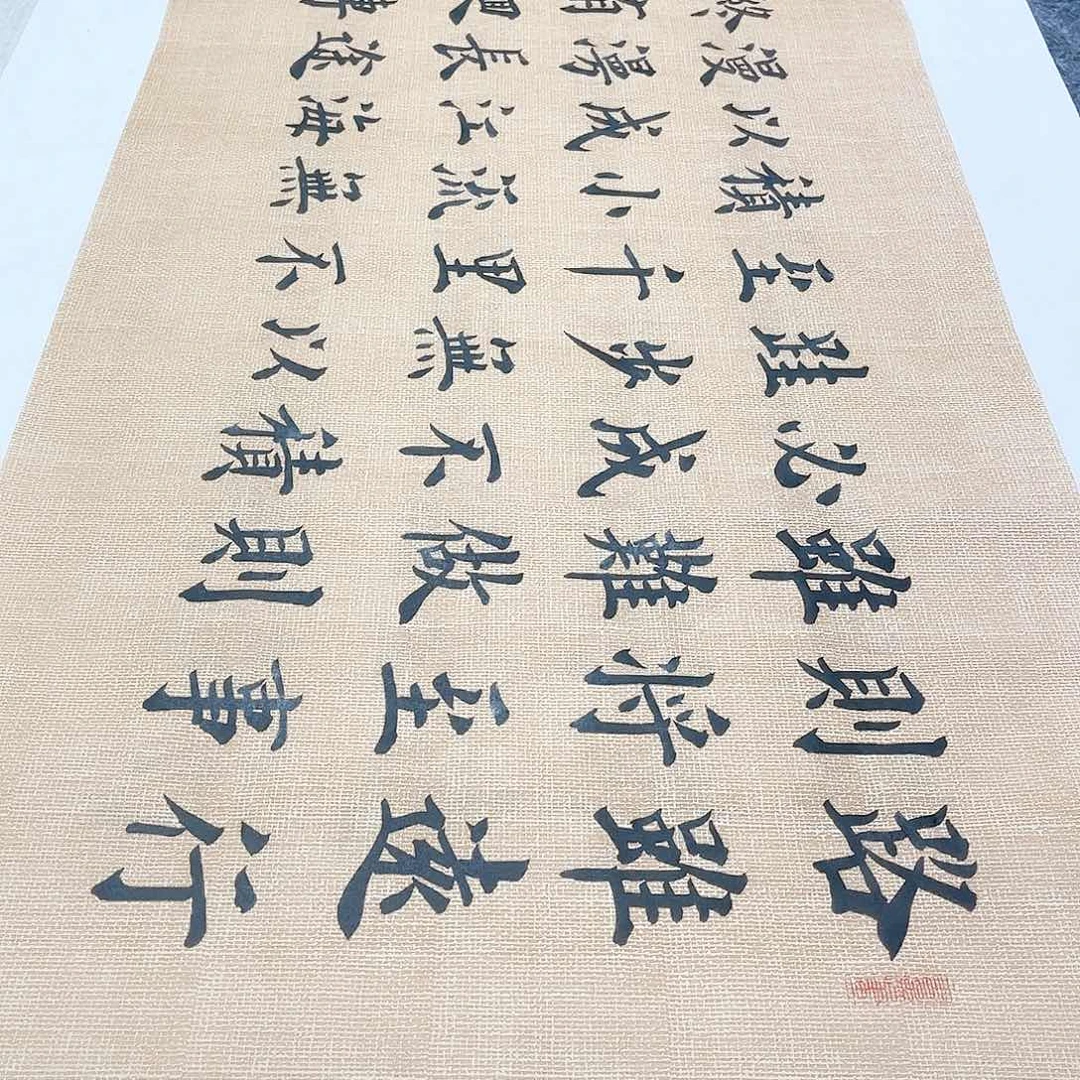 路雖遠行
則將至事
雖難做則
必成不積
跬步無以
至千里不
積小流無
以成江海
漫漫長途